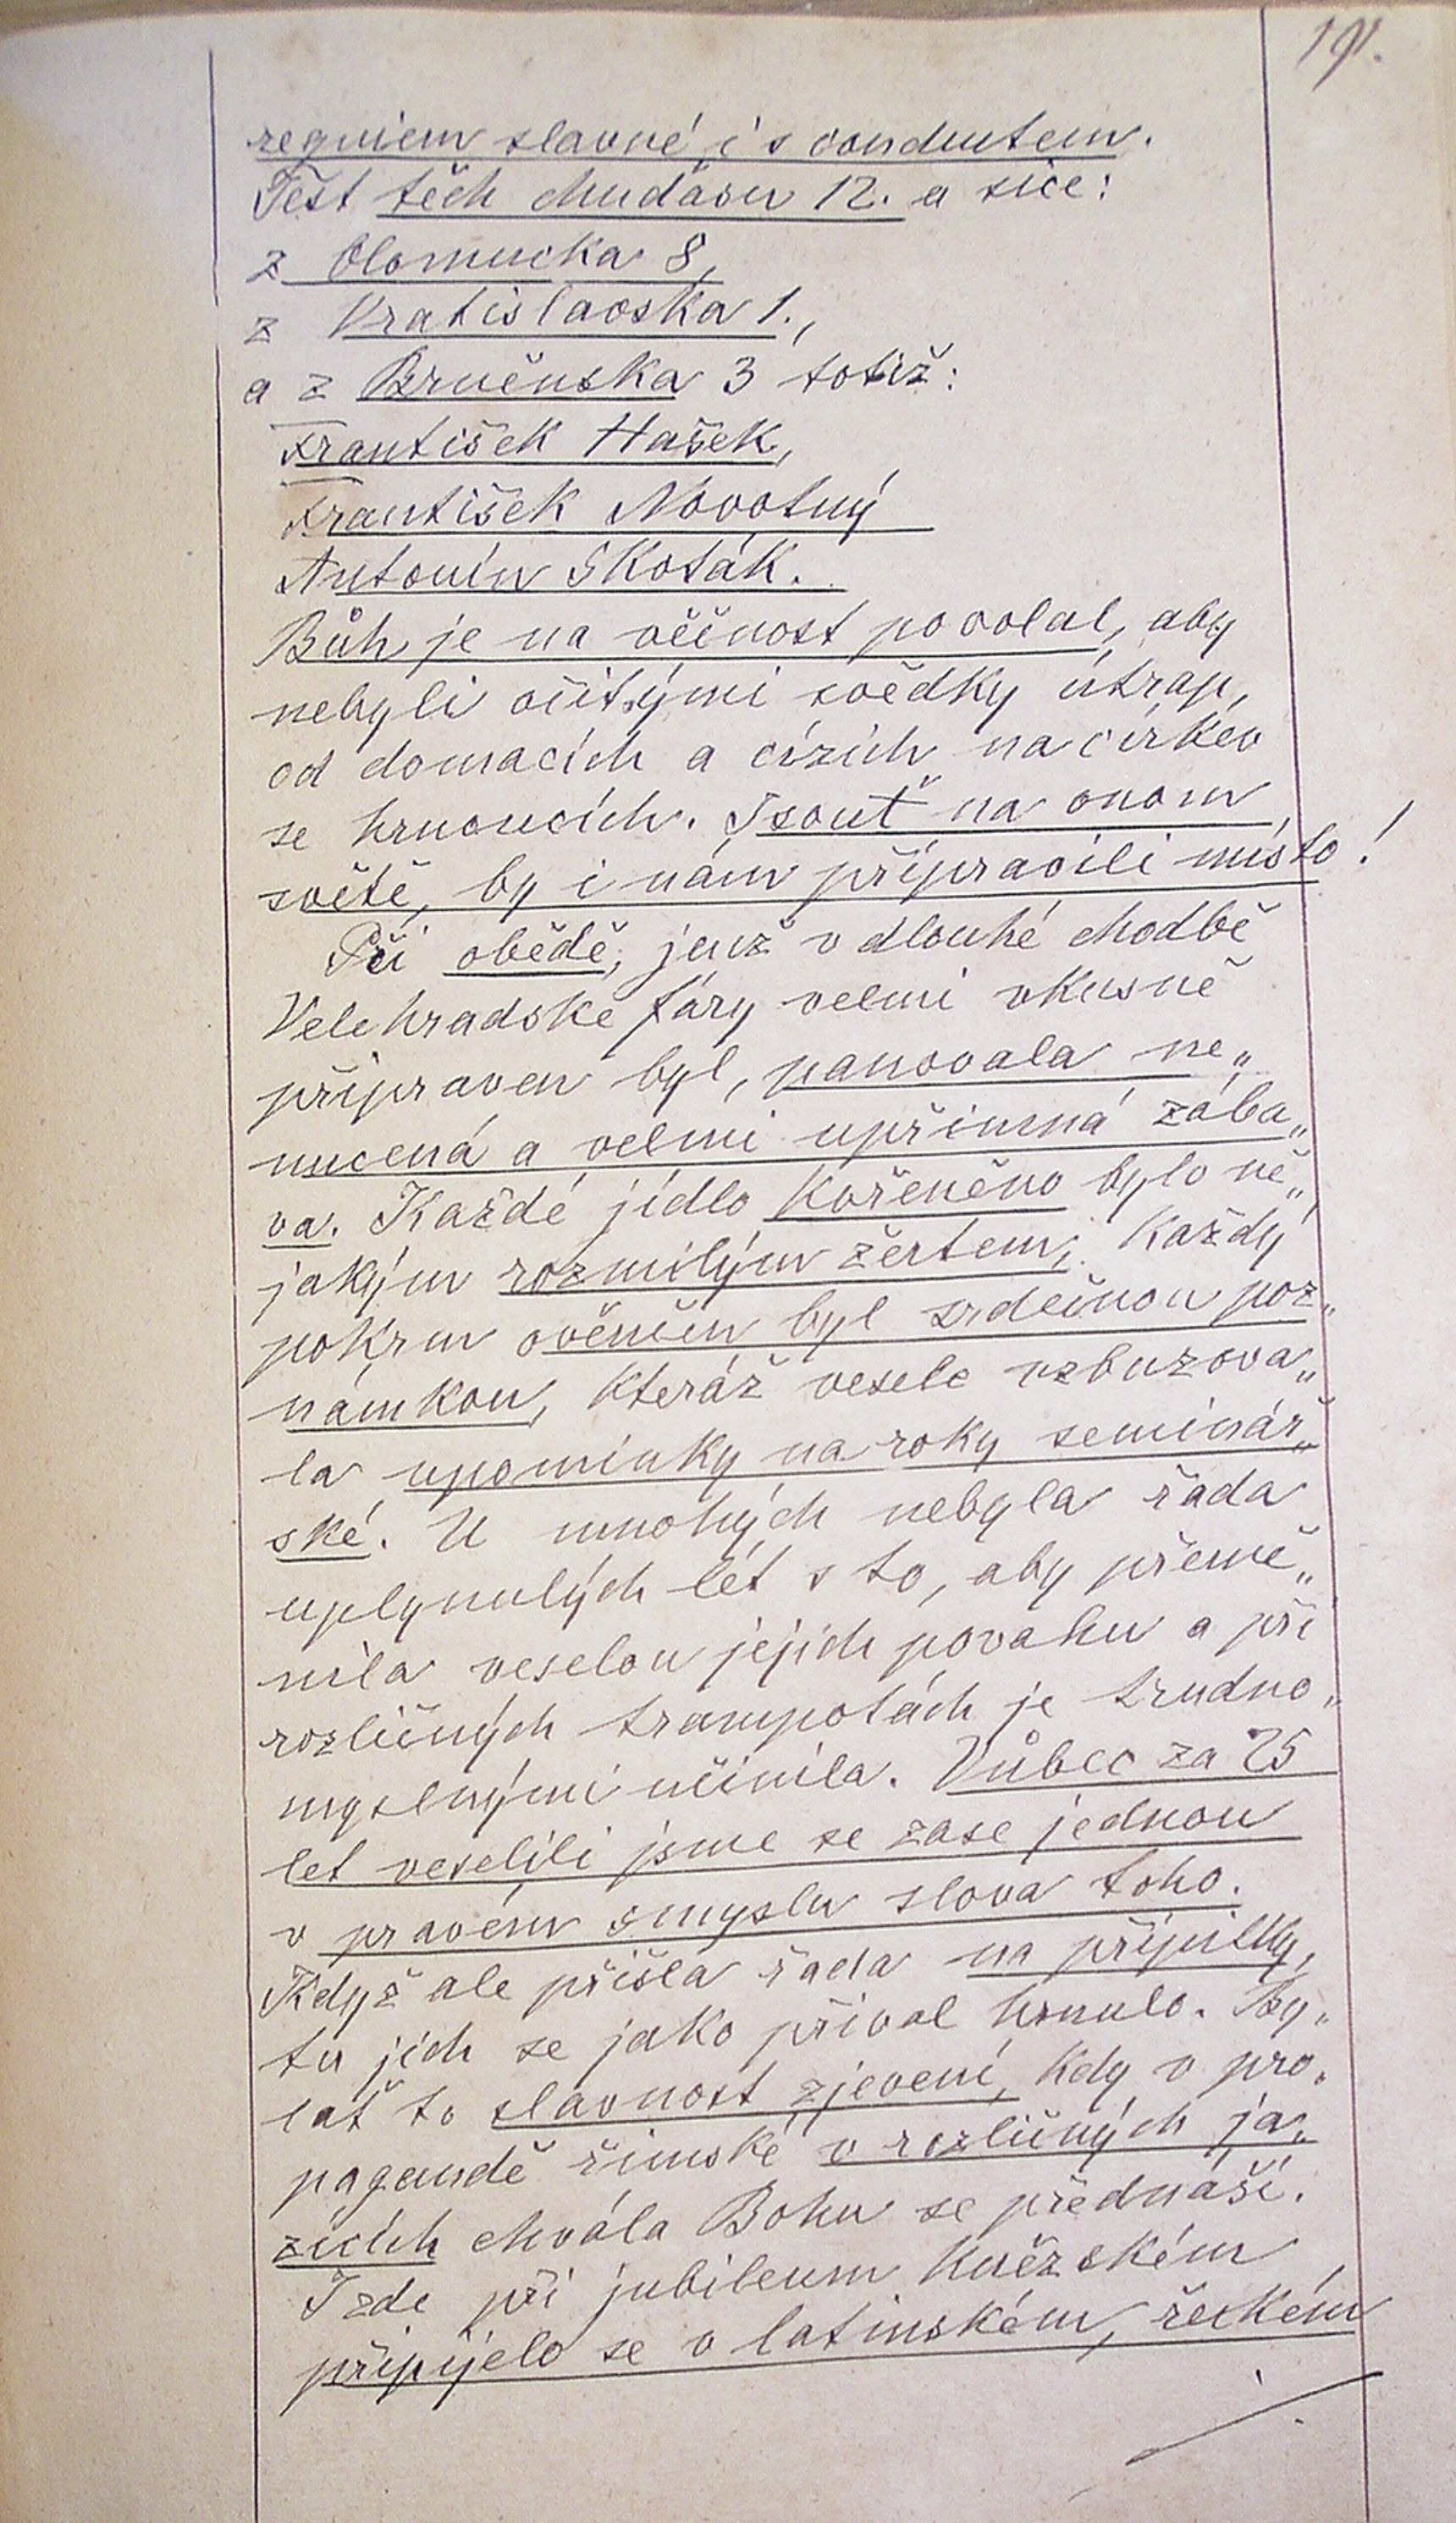 191.
requiem slavné i s conductem.
Jest těch chuďasů 12. a sice:
z Olomucka 8,
z Vratislavska 1.,
a z Brněnska 3 totiž:
František Hašek,
František Novotný
Antonín Skoták.
Bůh je na věčnost povolal, aby
nebyli očitými svědky útrap,
od domacích a cízích na cirkev
se hrnoucích. Jsouť na onom
světě, by i nám připravili místo!
Při obědě, jenž v dlouhé chodbě
Velehradské fáry velmi vkusně
připraven byl, panovala ne„
nucená a velmi upřimná zába„
va. Každé jídlo kořeněno bylo ně„
jakým rozmilým žertem; každý
pokrm ověnčen byl srdečnou poz„
námkou, kteráž vesele vzbuzova„
la upomínky na roky seminář„
ské. U mnohých nebyla řada
uplynulých lét s to, aby přemě„
nila veselou jejich povahu a při
rozličných trampotách je trudno„
myslnými učinila. Vůbec za 25
let veselili jsme se zase jednou
v pravém smyslu slova toho.
Když ale přišla řada na připitky,
tu jich se jako přival hrnulo. By„
lať to slavnost zjevení, kdy v pro„
pagandě římské v rozličných ja„
zicích chvála Bohu se přednaší.
I zde při jubileum kněžském
připijelo se v latinském, řeckém